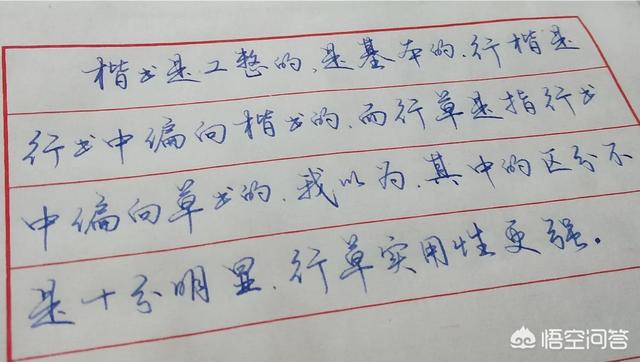 楷书是工整的、是基本的、行楷是
行书中偏向楷书的、而行草是指行书
中偏向草书的、我以为、其中的区分不
是十分明显、行草实用性更强。
悟空问答